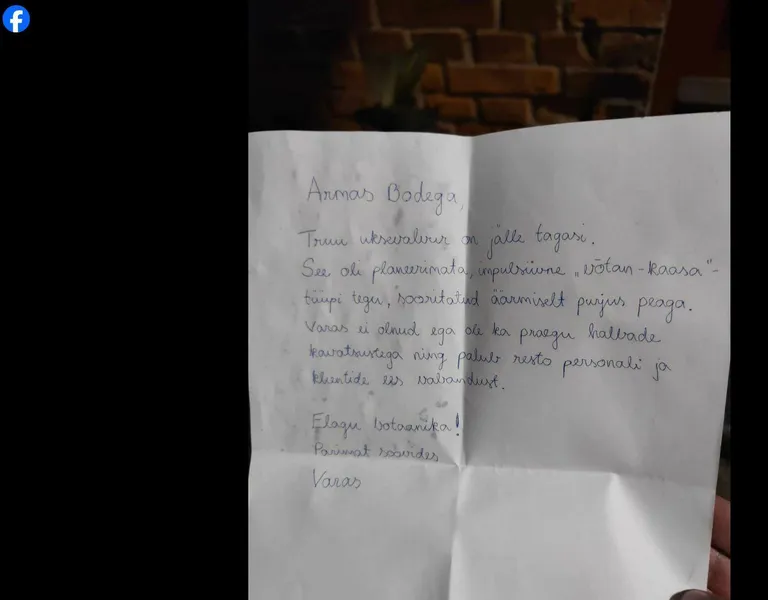 Armas Bodega,
Truu uksevalvur on jälle tagasi.
See oli planeerimata, impulsiivne „võtan-kaasa"-
tüüpi tegu, sooritatud äärmiselt purjus peaga.
Varas ei olnud ega ole ka praegu halbade
kavatsustega ning palub resto personali ja
klientide ees vabandust.
Elagu botaanika!
Parimat soovides
Varas